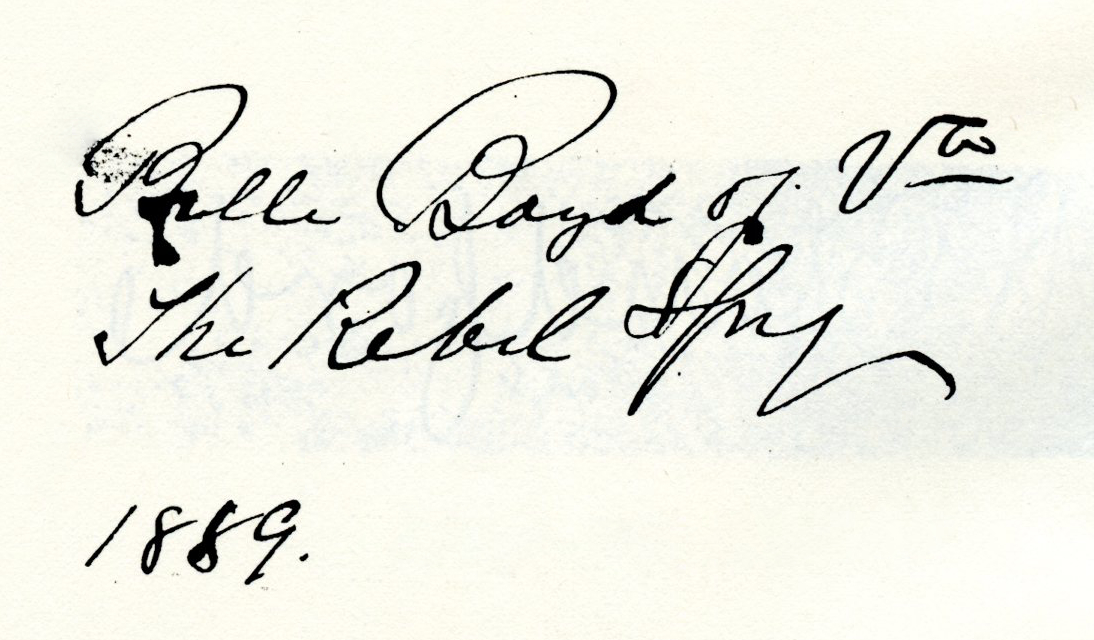 Belle Boyd of Va
The Rebel Spy
1889.